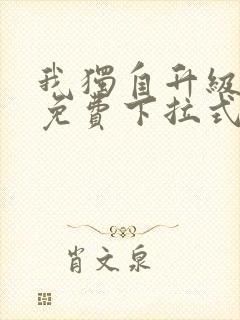 我獨自升級
免費下拉式
肖文泉